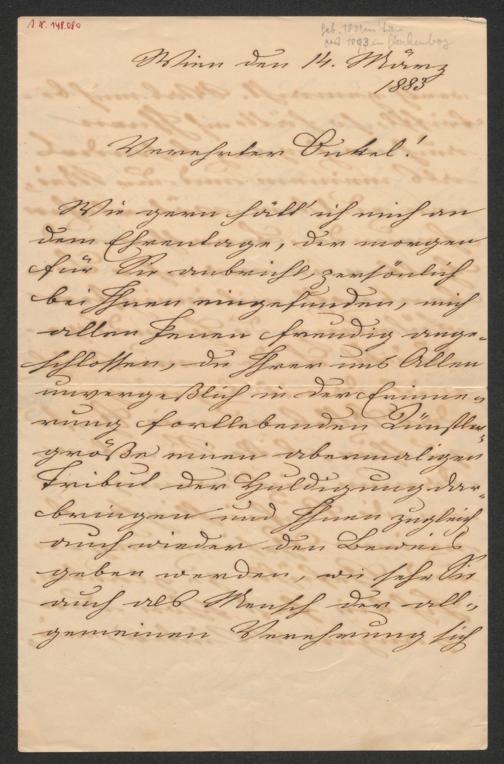 I. N. 148.080
Wien den 14. März
1883
Verehrter Onkel!
Wie gern hätt' ich mich an
dem Ehrentage, der morgen
für Sie anbricht, persönlich
bei Ihnen eingefunden, mich
allen Jenen freudig ange-
schlossen, die Ihrer uns Allen
unvergeßlich in der Erinne-
rung fortlebenden Künstler-
größe einen abermaligen
Tribut der Huldigung dar-
bringen und Ihnen zugleich
auch wieder den Beweis
geben werden, wie sehr Sie
auch als Mensch der all-
gemeinen Verehrung sich